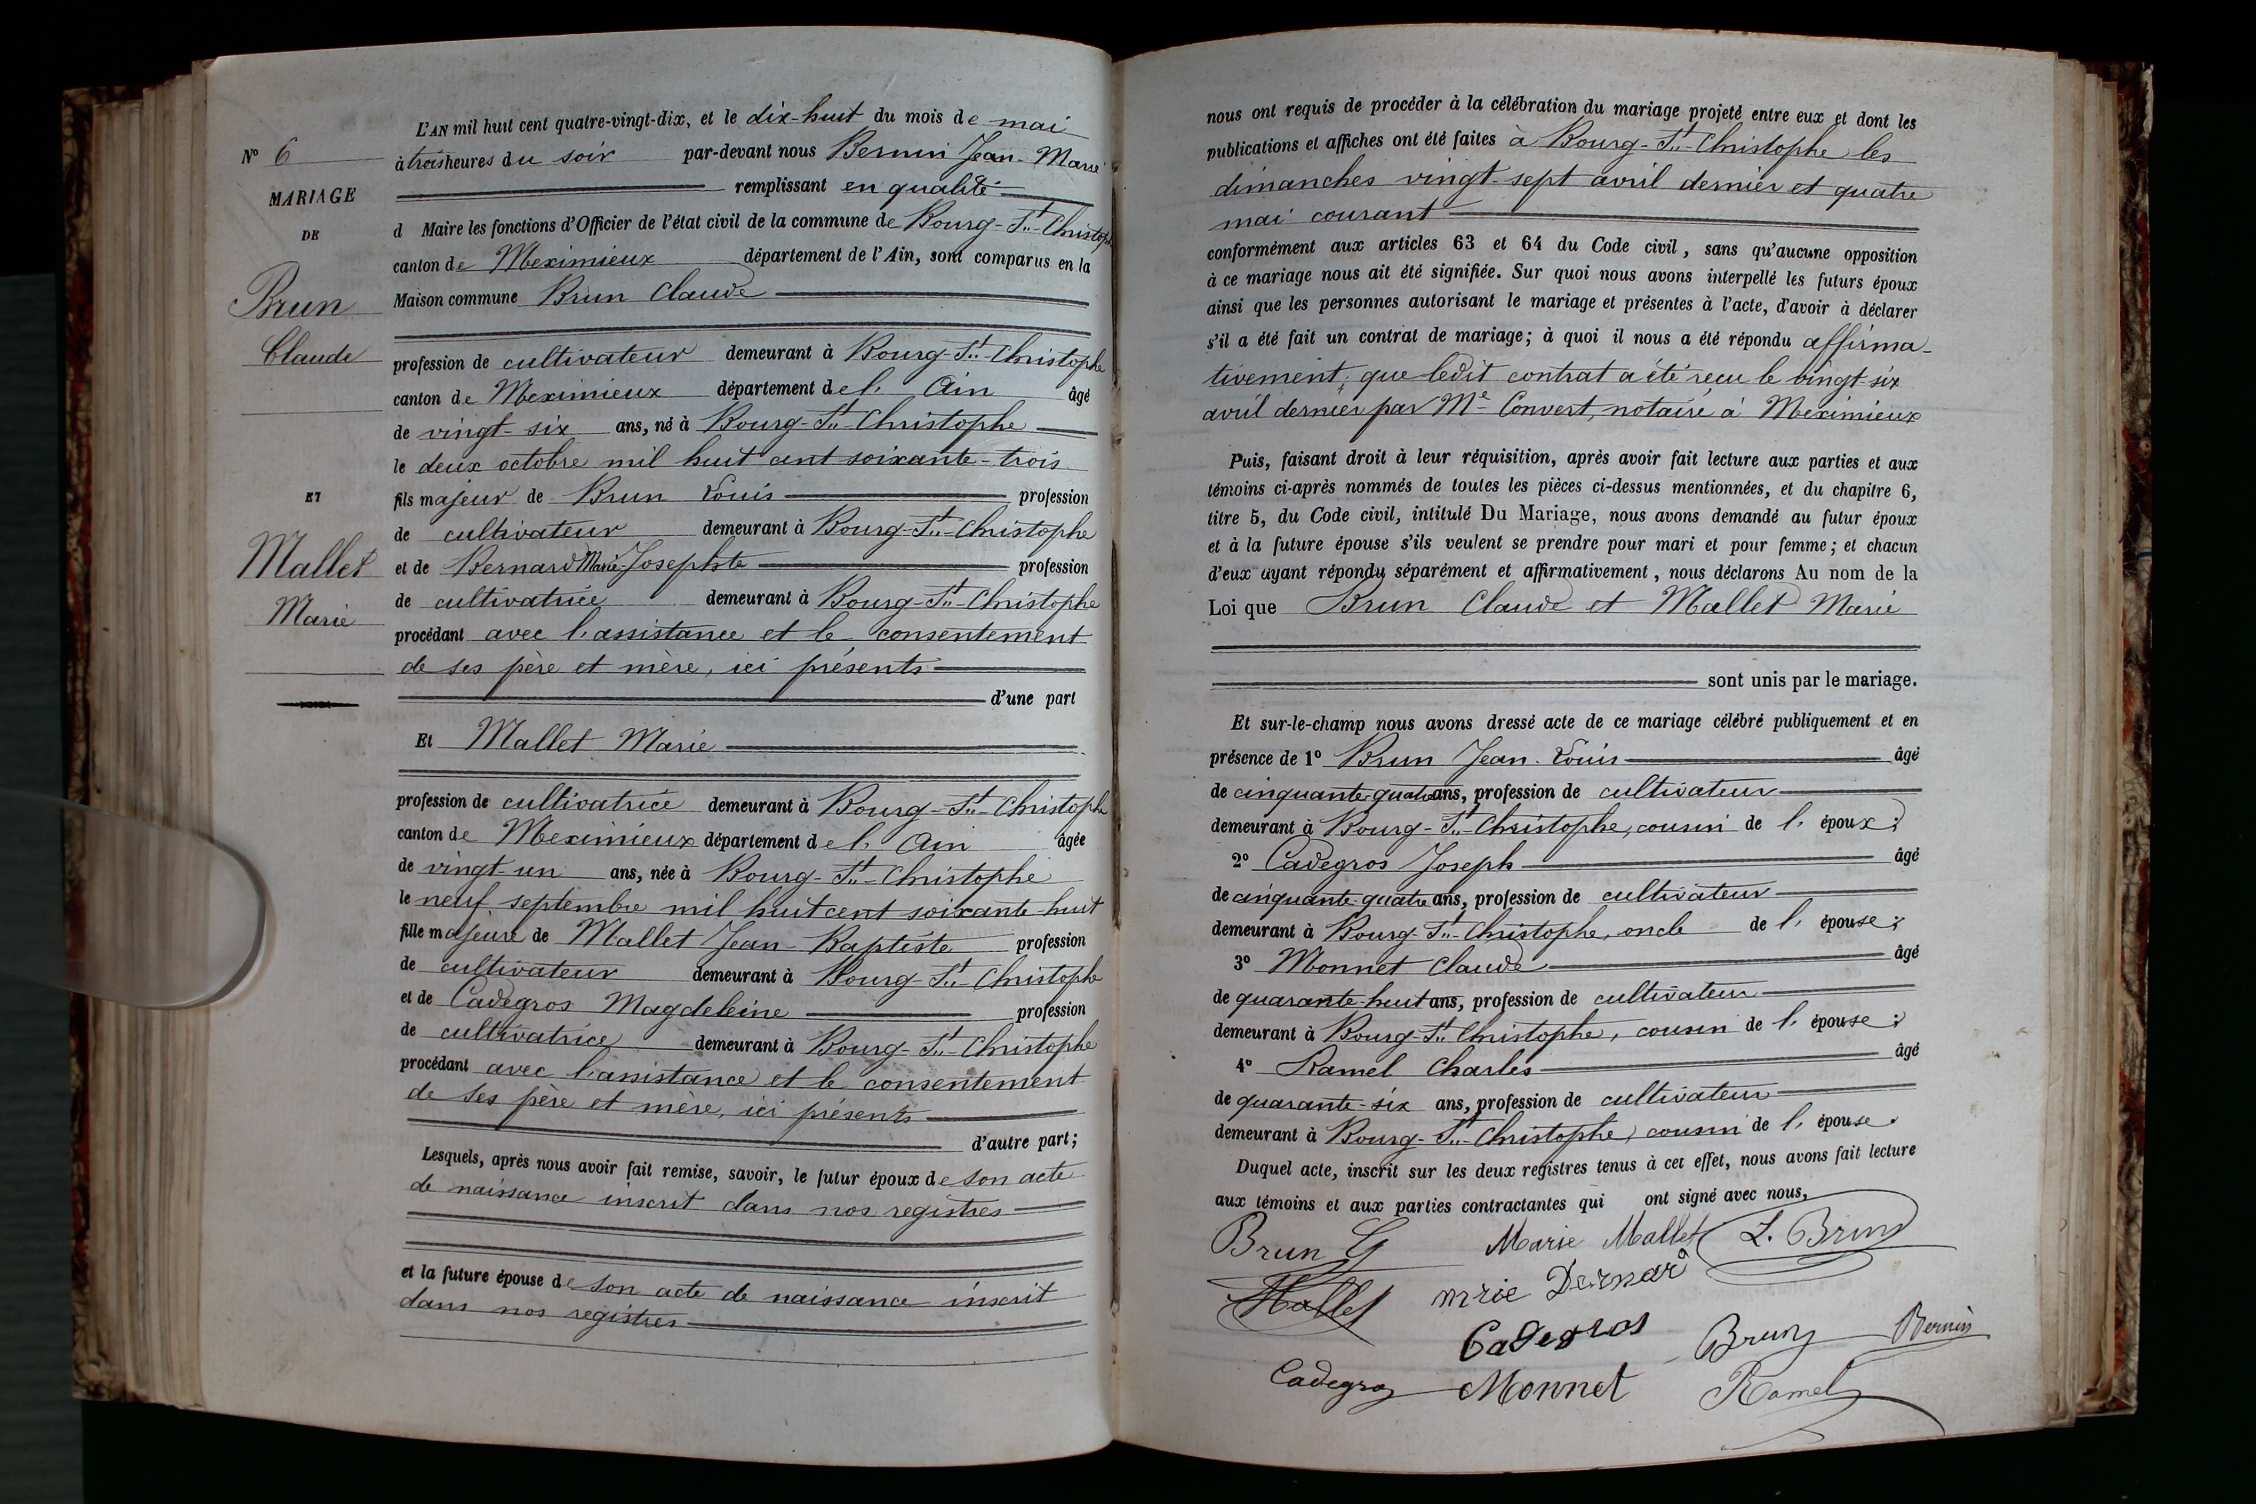 N° 6
MARIAGE
DE
Brun
Claude
ET
Mallet
Marie
L'AN mil huit cent quatre-vingt-dix, et le dix-huit du mois de mai
à trois heures du soir par-devant nous Bernin Jean-Marie
remplissant en qualité
d Maire les fonctions d'Officier de l'état civil de la commune de Bourg-St-Christophe
canton de Meximieux département de l'Ain, sont comparus en la
Maison commune Brun Claude
profession de cultivateur demeurant à Bourg-St-Christophe
canton de Meximieux département de l'Ain âgé
de vingt-six ans, né à Bourg-St-Christophe
le deux octobre mil huit cent soixante-trois
fils majeur de Brun Louis profession
de cultivateur demeurant à Bourg-St-Christophe
et de Bernard Marie-Josephte profession
de cultivatrice demeurant à Bourg-St-Christophe
procédant avec l'assistance et le consentement
de ses père et mère, ici présents
d'une part
Et Mallet Marie
profession de cultivatrice demeurant à Bourg-St-Christophe
canton de Meximieux département de l'Ain âgée
de vingt-un ans, née à Bourg-St-Christophe
le neuf septembre mil huit cent soixante-huit
fille majeure de Mallet Jean-Baptiste profession
de cultivateur demeurant à Bourg-St-Christophe
et de Cadegros Magdeleine profession
de cultivatrice demeurant à Bourg-St-Christophe
procédant avec l'assistance et le consentement
de ses père et mère, ici présents
d'autre part;
Lesquels, après nous avoir fait remise, savoir, le futur époux de son acte
de naissance inscrit dans nos registres
et la future épouse de son acte de naissance inscrit
dans nos registres
nous ont requis de procéder à la célébration du mariage projeté entre eux et dont les
publications et affiches ont été faites à Bourg-St-Christophe les
dimanches vingt-sept avril dernier et quatre
mai courant
conformément aux articles 63 et 64 du Code civil, sans qu'aucune opposition
à ce mariage nous ait été signifiée. Sur quoi nous avons interpellé les futurs époux
ainsi que les personnes autorisant le mariage et présentes à l'acte, d'avoir à déclarer
s'il a été fait un contrat de mariage; à quoi il nous a été répondu affirma-
tivement; que ledit contrat a été reçu le vingt-six
avril dernier par Me Convert, notaire à Meximieux
Puis, faisant droit à leur réquisition, après avoir fait lecture aux parties et aux
témoins ci-après nommés de toutes les pièces ci-dessus mentionnées, et du chapitre 6,
titre 5, du Code civil, intitulé Du Mariage, nous avons demandé au futur époux
et à la future épouse s'ils veulent se prendre pour mari et pour femme; et chacun
d'eux ayant répondu séparément et affirmativement, nous déclarons Au nom de la
Loi que Brun Claude et Mallet Marie
sont unis par le mariage.
Et sur-le-champ nous avons dressé acte de ce mariage célébré publiquement et en
présence de 1° Brun Jean-Louis âgé
de cinquante-quatre ans, profession de cultivateur
demeurant à Bourg-St-Christophe, cousin de l'époux;
2° Cadegros Joseph âgé
de cinquante-quatre ans, profession de cultivateur
demeurant à Bourg-St-Christophe, oncle de l'épouse;
3° Monnet Claude âgé
de quarante-huit ans, profession de cultivateur
demeurant à Bourg-St-Christophe, cousin de l'épouse;
4° Ramel Charles âgé
de quarante-six ans, profession de cultivateur
demeurant à Bourg-St-Christophe, cousin de l'épouse.
Duquel acte, inscrit sur les deux registres tenus à cet effet, nous avons fait lecture
aux témoins et aux parties contractantes qui ont signé avec nous.
Brun Marie Mallet L. Brun
Mallet mrie Bernard
Cadegros Brun Bernin
Cadegros Monnet Ramel